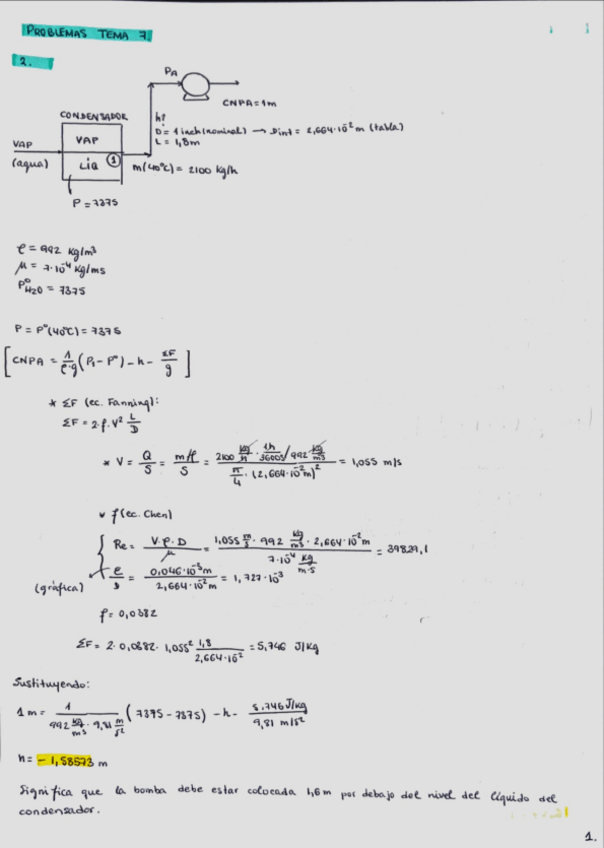 PROBLEMAS TEMA 7.
2.
PA
CNPA = 1m
h?
D = 1 inch (nominal) → Dint = 2,664·10⁻² m (tabla)
L = 1,8m
CONDENSADOR
VAP
VAP
(agua)
LIQ ①
ṁ(40ºC) = 2100 kg/h
P = 7375
ρ = 992 kg/m³
μ = 7·10⁻⁴ kg/ms
P°H2O = 7375
P = P°(40ºC) = 7375
[CNPA = 1/ρ·g (P₁ - P°) - h - ΣF/g]
* ΣF (ec. Fanning):
ΣF = 2·f·V² L/D
* V = Q/S = ṁ/ρ/S = 2100 kg/h · 1h/3600s / 992 kg/m³ / π/4 · (2,664·10⁻² m)² = 1,055 m/s
* f (ec. Chen)
Re = V·ρ·D/μ = 1,055 m/s · 992 kg/m³ · 2,664·10⁻² m / 7·10⁻⁴ kg/m·s = 39829,1
(gráfica) e/D = 0,046·10⁻³ m / 2,664·10⁻² m = 1,727·10⁻³
f = 0,0382
ΣF = 2·0,0382·1,055² 1,8/2,664·10⁻² = 5,746 J/kg
Sustituyendo:
1 m = 1/992 kg/m³ · 9,81 m/s² (7375 - 7375) - h - 5,746 J/kg / 9,81 m/s²
h = -1,58573 m
Significa que la bomba debe estar colocada 1,6 m por debajo del nivel del líquido del
condensador.
1.